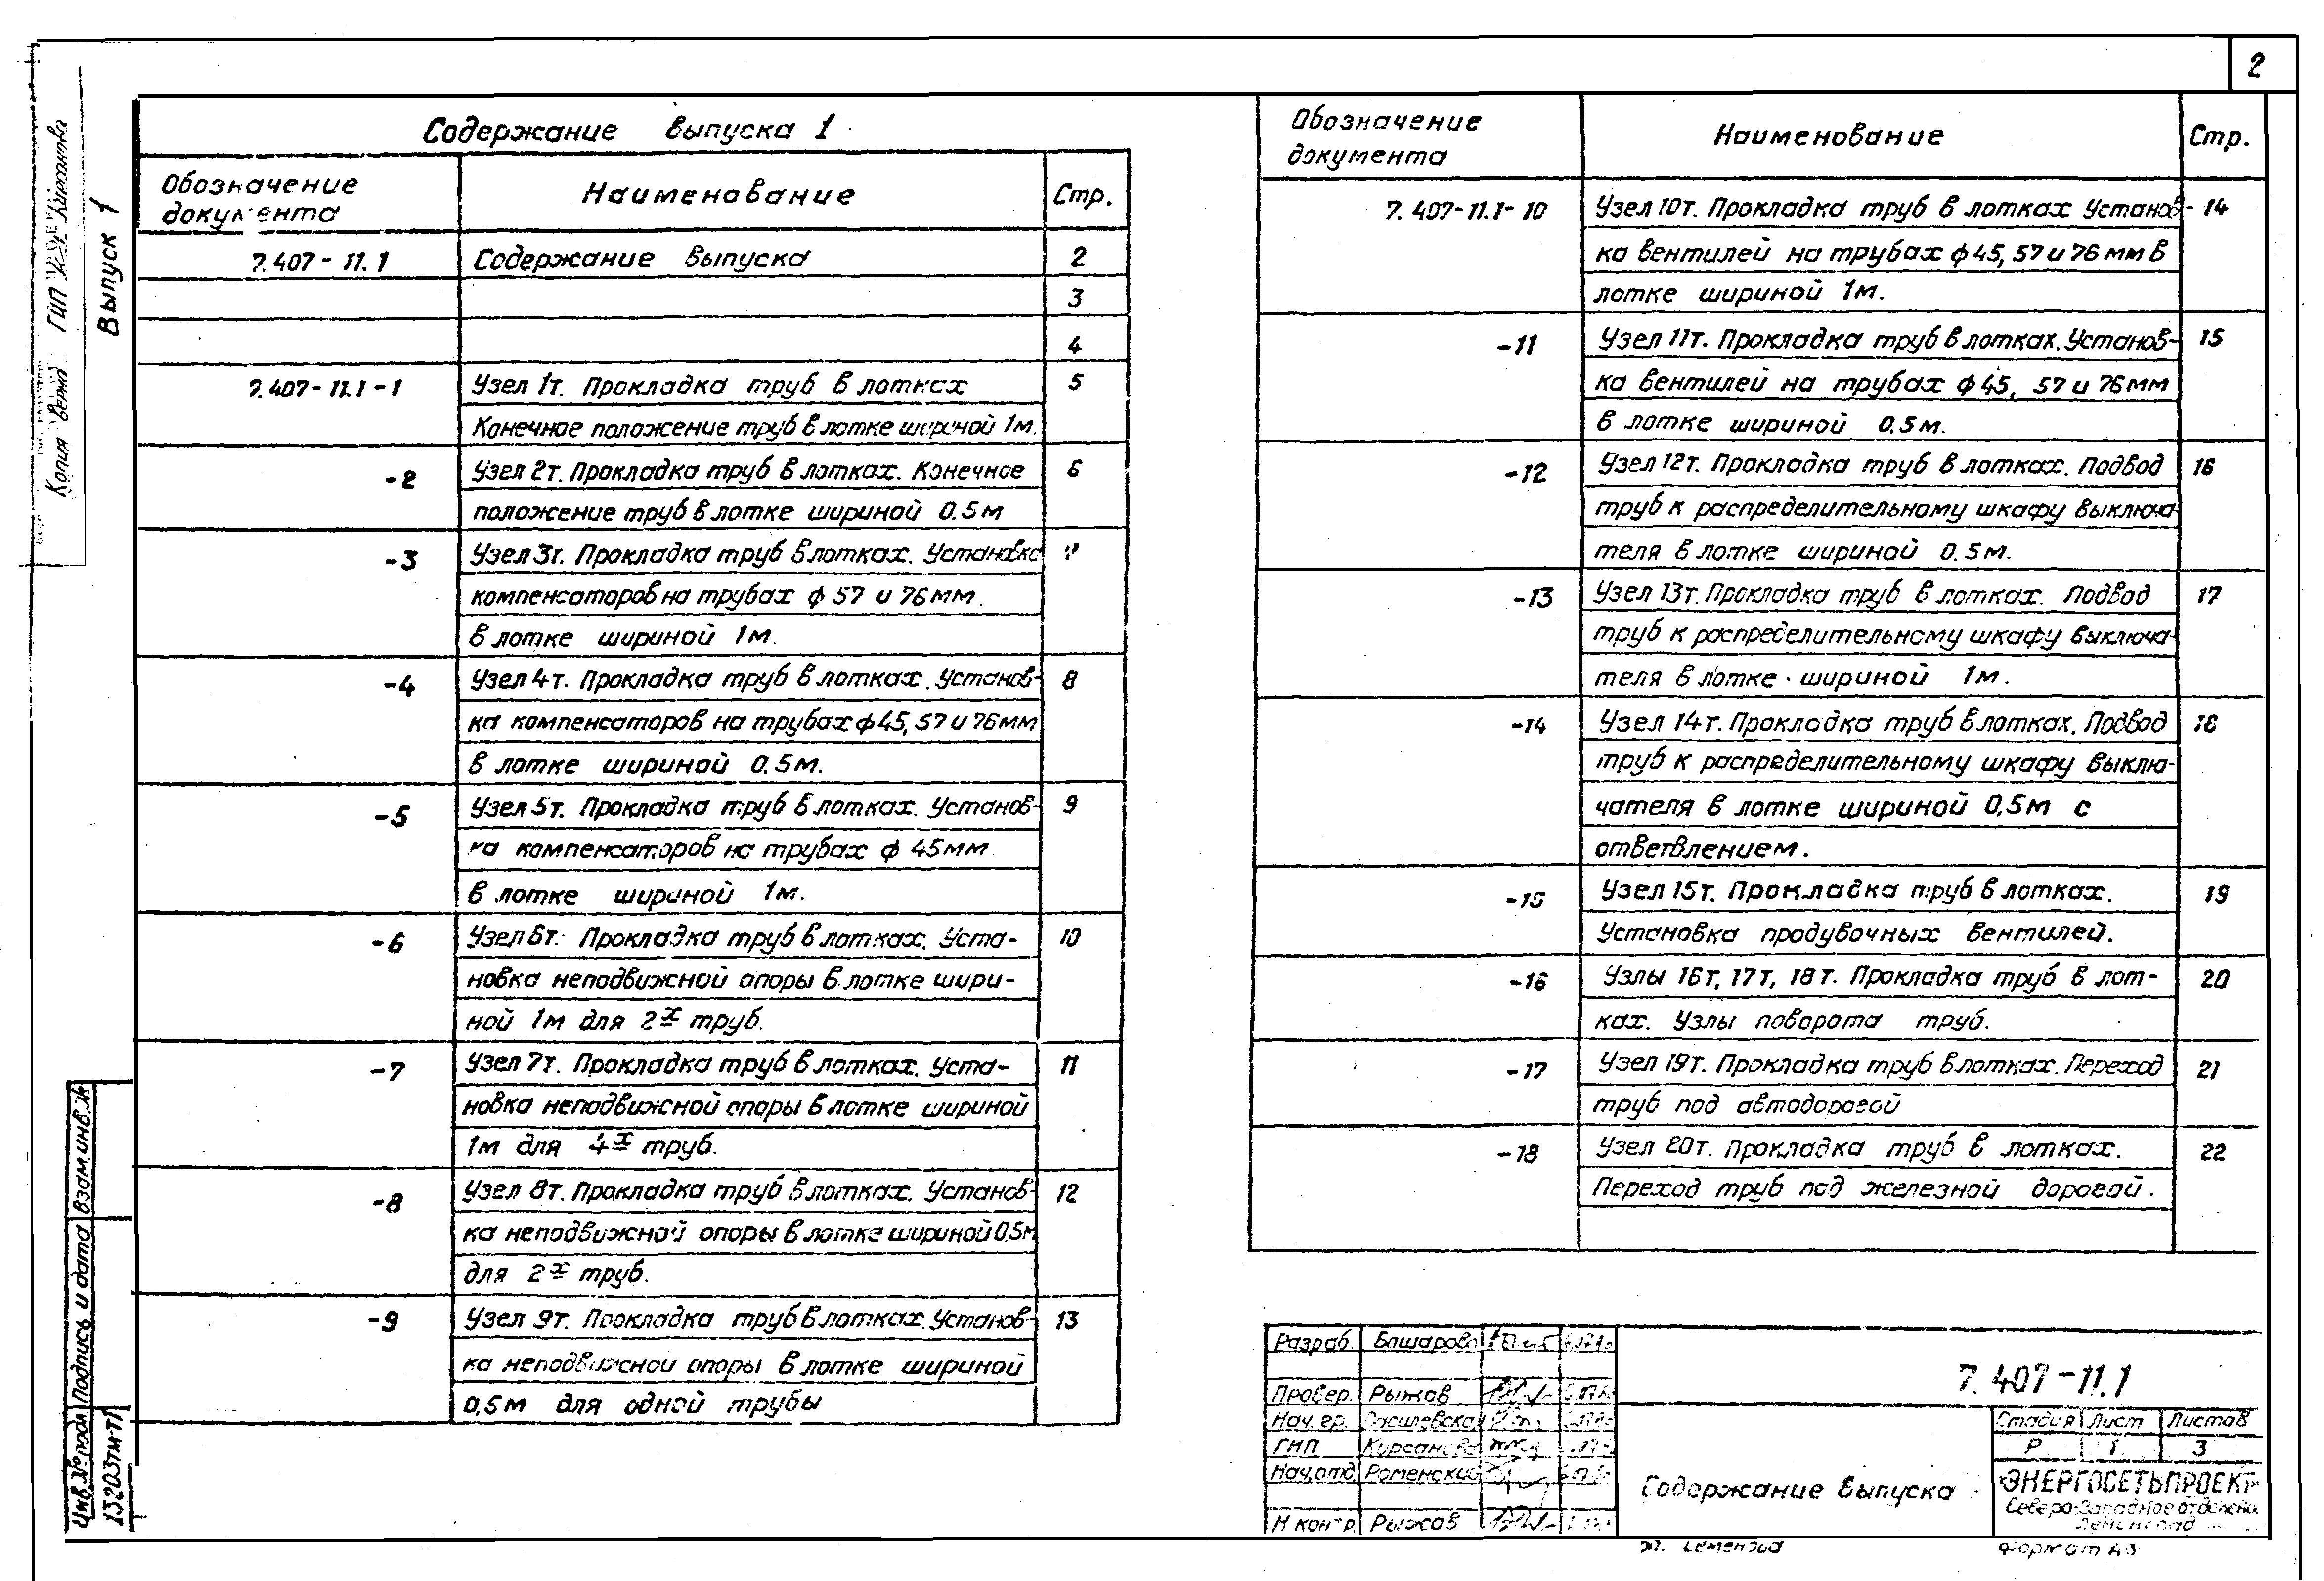 2
Содержание выпуска 1
Обозначение документа
Наименование
Стр.
7.407-11.1
Содержание выпуска
2
3
4
7.407-11.1-1
Узел 1т. Прокладка труб в лотках
5
Конечное положение труб в лотке шириной 1м.
-2
Узел 2т. Прокладка труб в лотках. Конечное
6
положение труб в лотке шириной 0.5м
-3
Узел 3т. Прокладка труб в лотках. Установка
7
компенсаторов на трубах ф 57 и 76мм.
в лотке шириной 1м.
-4
Узел 4т. Прокладка труб в лотках. Установ-
8
ка компенсаторов на трубах ф45, 57 и 76мм
в лотке шириной 0.5м.
-5
Узел 5т. Прокладка труб в лотках. Установ-
9
ка компенсаторов на трубах ф 45мм
в лотке шириной 1м.
-6
Узел 6т. Прокладка труб в лотках. Уста-
10
новка неподвижной опоры в лотке шири-
ной 1м для 2х труб.
-7
Узел 7т. Прокладка труб в лотках. Уста-
11
новка неподвижной опоры в лотке шириной
1м для 4х труб.
-8
Узел 8т. Прокладка труб в лотках. Установ-
12
ка неподвижной опоры в лотке шириной 0.5м
для 2х труб.
-9
Узел 9т. Прокладка труб в лотках. Установ-
13
ка неподвижной опоры в лотке шириной
0,5м для одной трубы
Обозначение документа
Наименование
Стр.
7.407-11.1-10
Узел 10т. Прокладка труб в лотках Установ-
14
ка вентилей на трубах ф45, 57 и 76мм в
лотке шириной 1м.
-11
Узел 11т. Прокладка труб в лотках. Установ-
15
ка вентилей на трубах ф45, 57 и 76мм
в лотке шириной 0.5м.
-12
Узел 12т. Прокладка труб в лотках. Подвод
16
труб к распределительному шкафу выключа-
теля в лотке шириной 0.5м.
-13
Узел 13т. Прокладка труб в лотках. Подвод
17
труб к распределительному шкафу выключа-
теля в лотке шириной 1м.
-14
Узел 14т. Прокладка труб в лотках. Подвод
18
труб к распределительному шкафу выклю-
чателя в лотке шириной 0,5м с
ответвлением.
-15
Узел 15т. Прокладка труб в лотках.
19
Установка продувочных вентилей.
-16
Узлы 16т, 17т, 18т. Прокладка труб в лот-
20
ках. Узлы поворота труб.
-17
Узел 19т. Прокладка труб в лотках. Переход
21
труб под автодорогой
-18
Узел 20т. Прокладка труб в лотках.
22
Переход труб под железной дорогой.
Разраб. Башарова
Провер. Рыжов
Нач. гр. Василевская
ГИП Кирсанова
Нач.отд. Роменский
Н контр. Рыжов
7.407-11.1
Содержание выпуска
Стадия Лист Листов
Р 1 3
"ЭНЕРГОСЕТЬПРОЕКТ"
Северо-Западное отделение
Ленинград
Формат А3
Выпуск 1
Копия верна ГИП
Инв.№ подл. Подпись и дата Взам.инв.№
13203тм-т1